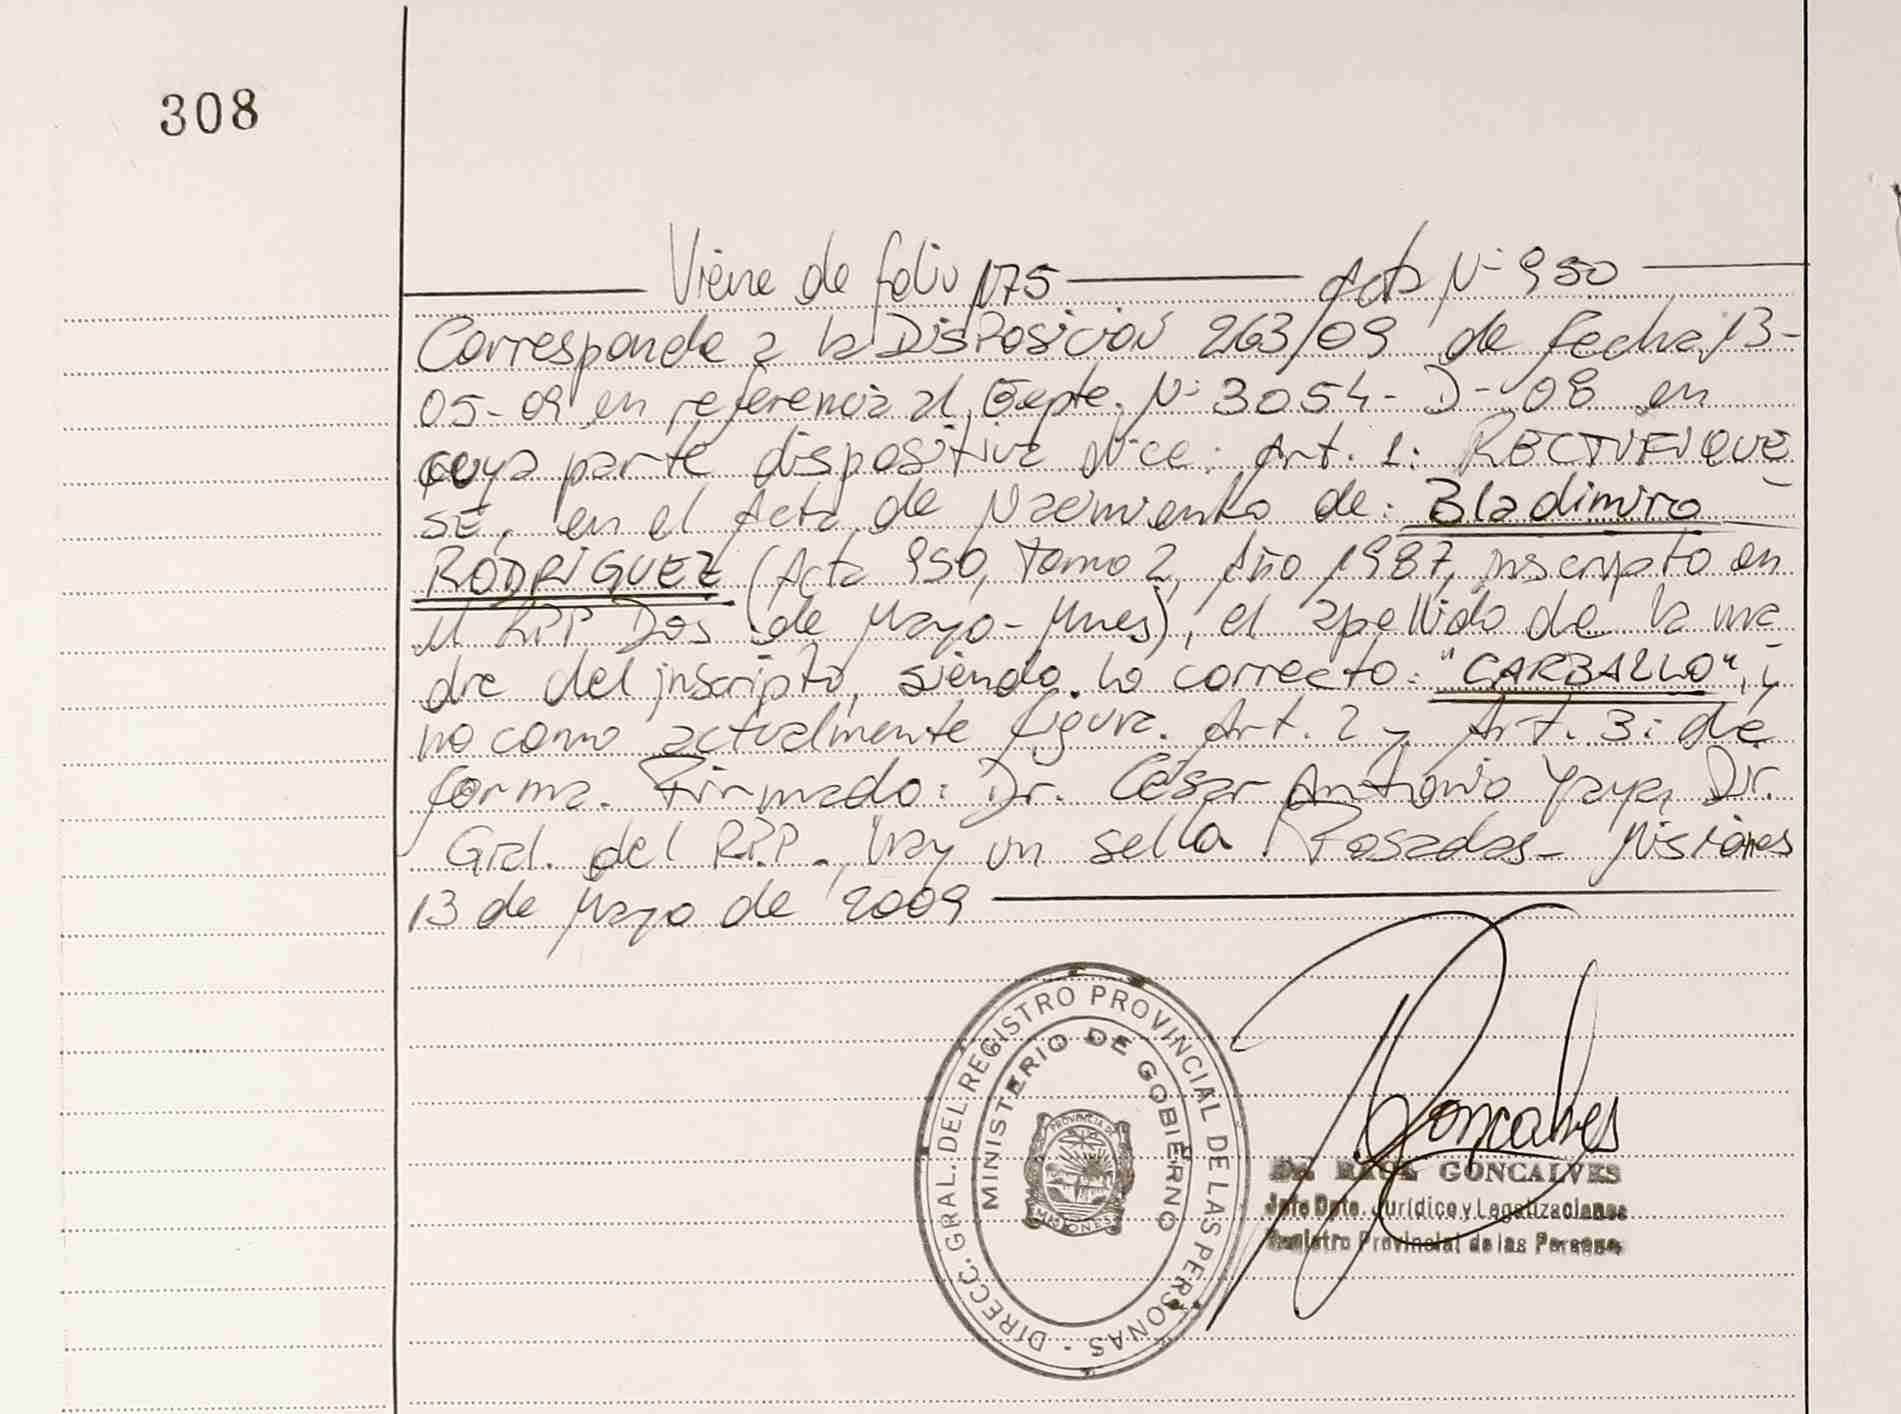 308
Viene de folio 175 Acta Nº 950
Corresponde a la DisPosición 263/09 de fecha 13-
05-09 en referencia al Expte. Nº 3054-D-08 en
cuya parte dispositiva dice: Art. 1: RECTIFIQUE
SE, en el Acta de Nacimiento de: Bladimiro
RODRÍGUEZ (Acta 950, Tomo 2, Año 1987, inscripto en
el RPP Dos de Mayo-Mnes), el apellido de la ma
dre del inscripto, siendo lo correcto: "CARBALLO", y
no como actualmente figura. Art. 2 y Art. 3: de
forma. Firmado: Dr. César Antonio Yaya, Dir.
Gral. del R.P.P., hay un sello Posadas- Misiones
13 de Mayo de 2009
DIRECC. GRAL. DEL REGISTRO PROVINCIAL DE LAS PERSONAS -
MINISTERIO DE GOBIERNO
PROVINCIA DE
MISIONES
Goncalves
Dr. RAUL GONCALVES
Jefe Dpto. Jurídico y Legalizaciones
Registro Provincial de las Personas